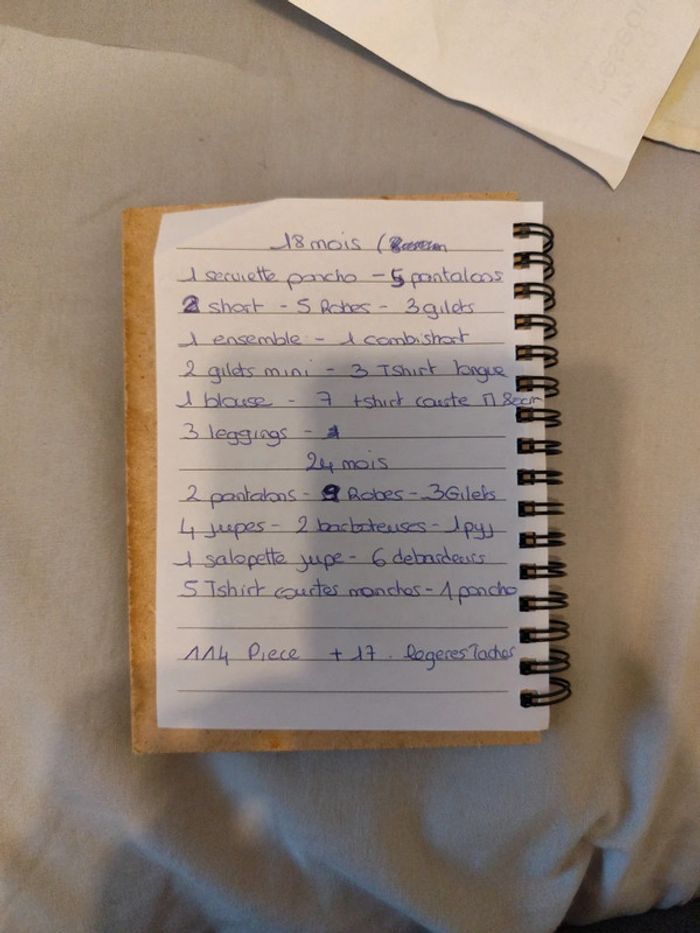 18 mois (
1 serviette poncho - 5 pantalons
2 short - 5 Robes - 3 gilets
1 ensemble - 1 combishort
2 gilets mini - 3 Tshirt longue
1 blouse - 7 tshirt courte
3 leggings -
24 mois
2 pantalons - 9 Robes - 3 Gilets
4 jupes - 2 barboteuses - 1 pyj
1 salopette jupe - 6 debardeurs
5 Tshirt courtes manches - 1 poncho
114 Piece + 17. legeres Taches